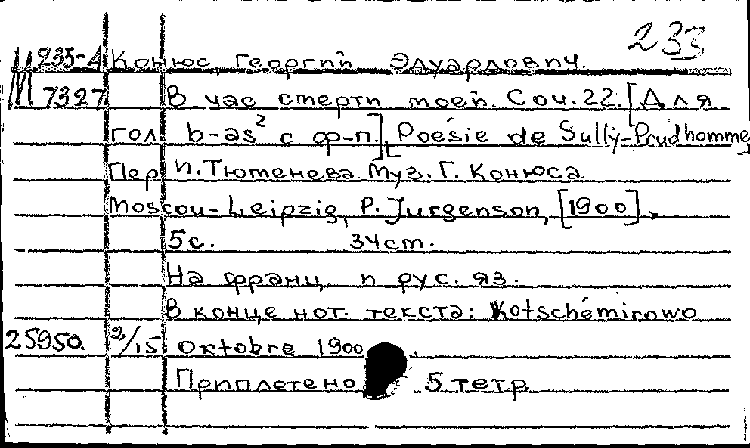 233
М 935-4 Конюс, Георгий Эдуардович.
7327 В час смерти моей. Соч. 22. [Для
гол. b-as² с ф-п], [Poésie de Sully-Prudhomme,
Пер. И. Тютенева. Муз. Г. Конюса
Moscou-Leipzig, P. Jurgenson, [1900].
5 с. 34 cm.
На франц. и рус. яз.
В конце нот. текста: Kotschémirowo
25950 2/15 oktobre 1900.
Приплетено 5 тетр